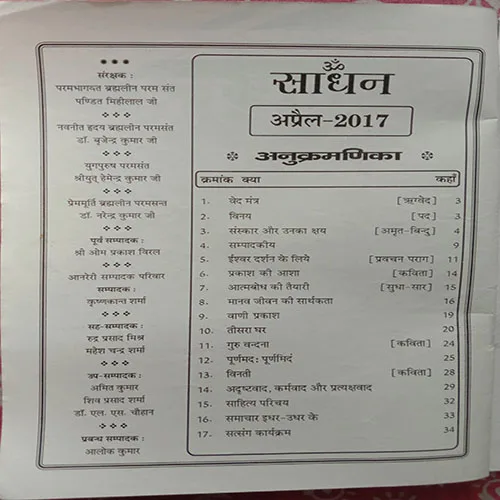 संरक्षक :
परमभागवत ब्रह्मलीन परम संत
पण्डित मिहीलाल जी
नवनीत हृदय ब्रह्मलीन परमसंत
डॉ. बृजेन्द्र कुमार जी
युगपुरुष परमसंत
श्रीयुत् हेमेन्द्र कुमार जी
प्रेममूर्ति ब्रह्मलीन परमसन्त
डॉ. नरेन्द्र कुमार जी
पूर्व सम्पादक :
श्री ओम प्रकाश विरल
आनरेरी सम्पादक परिवार
सम्पादक :
कृष्णकान्त शर्मा
सह-सम्पादक :
रुद्र प्रसाद मिश्र
महेश चन्द्र शर्मा
उप-सम्पादक :
अमित कुमार
शिव प्रसाद शर्मा
डॉ. एल. एस. चौहान
प्रबन्ध सम्पादक :
आलोक कुमार
ॐ
साधन
अप्रैल-2017
अनुक्रमणिका
क्रमांक क्या कहाँ
1. वेद मंत्र [ऋग्वेद] 3
2. विनय [पद] 3
3. संस्कार और उनका क्षय [अमृत-बिन्दु] 4
4. सम्पादकीय 9
5. ईश्वर दर्शन के लिये [प्रवचन पराग] 11
6. प्रकाश की आशा [कविता] 14
7. आत्मबोध की तैयारी [सुधा-सार] 15
8. मानव जीवन की सार्थकता 16
9. वाणी प्रकाश 19
10. तीसरा घर 20
11. गुरु वन्दना [कविता] 24
12. पूर्णमद: पूर्णमिदं 25
13. विनती [कविता] 28
14. अदृष्टवाद, कर्मवाद और प्रत्यक्षवाद 29
15. साहित्य परिचय 32
16. समाचार इधर-उधर के 33
17. सत्संग कार्यक्रम 34